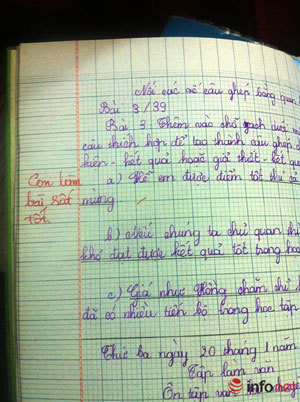 Nối các vế câu ghép bằng quan
Bài 3/39
Bài 3: Thêm vào chỗ gạch dưới
câu thích hợp để tạo thành câu ghép
kiện - kết quả hoặc giả thiết - kết quả
a) Nếu em được điểm tốt thì cả
mừng.
Con làm
bài rất
tốt.
b) Nếu chúng ta chủ quan thì
khó đạt được kết quả tốt trong học
c) Giá như Hồng chăm chỉ
đã có nhiều tiến bộ trong học tập
Thứ ba ngày 20 tháng 1 năm
Tập làm văn
Ôn tập văn
infonet